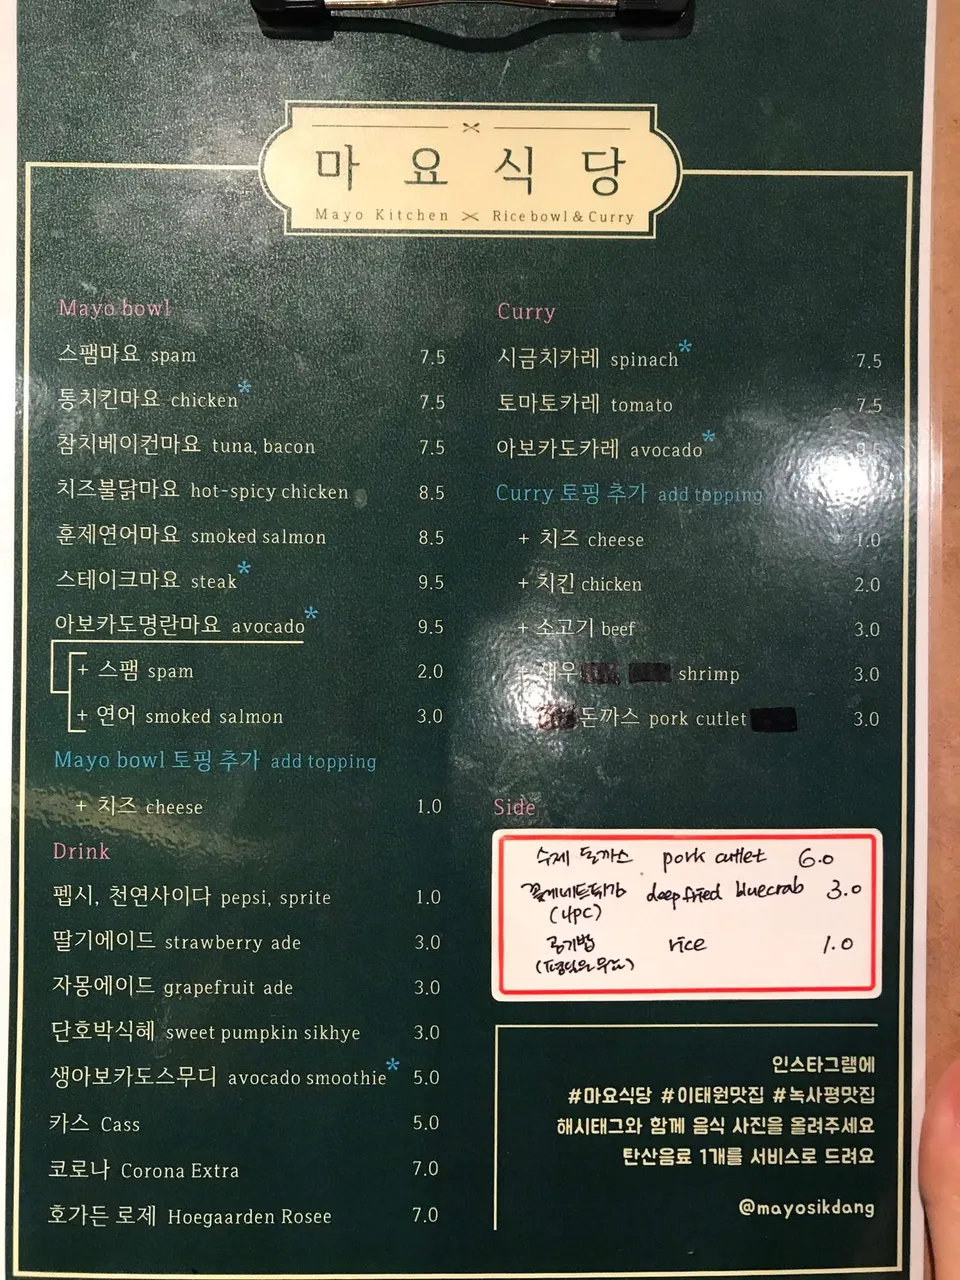 마요식당
Mayo Kitchen Rice bowl & Curry
Mayo bowl
스팸마요 spam 7.5
통치킨마요 chicken* 7.5
참치베이컨마요 tuna, bacon 7.5
치즈불닭마요 hot-spicy chicken 8.5
훈제연어마요 smoked salmon 8.5
스테이크마요 steak* 9.5
아보카도명란마요 avocado* 9.5
+ 스팸 spam 2.0
+ 연어 smoked salmon 3.0
Mayo bowl 토핑 추가 add topping
+ 치즈 cheese 1.0
Drink
펩시, 천연사이다 pepsi, sprite 1.0
딸기에이드 strawberry ade 3.0
자몽에이드 grapefruit ade 3.0
단호박식혜 sweet pumpkin sikhye 3.0
생아보카도스무디 avocado smoothie* 5.0
카스 Cass 5.0
코로나 Corona Extra 7.0
호가든 로제 Hoegaarden Rosee 7.0
Curry
시금치카레 spinach* 7.5
토마토카레 tomato 7.5
아보카도카레 avocado* 9.5
Curry 토핑 추가 add topping
+ 치즈 cheese 1.0
+ 치킨 chicken 2.0
+ 소고기 beef 3.0
+ 새우 shrimp 3.0
돈까스 pork cutlet 3.0
Side
수제 돈까스 pork cutlet 6.0
꽃게네트튀김 deep fried bluecrab 3.0
(4pc)
공기밥 rice 1.0
인스타그램에
#마요식당 #이태원맛집 #녹사평맛집
해시태그와 함께 음식 사진을 올려주세요
탄산음료 1개를 서비스로 드려요
@mayosikdang